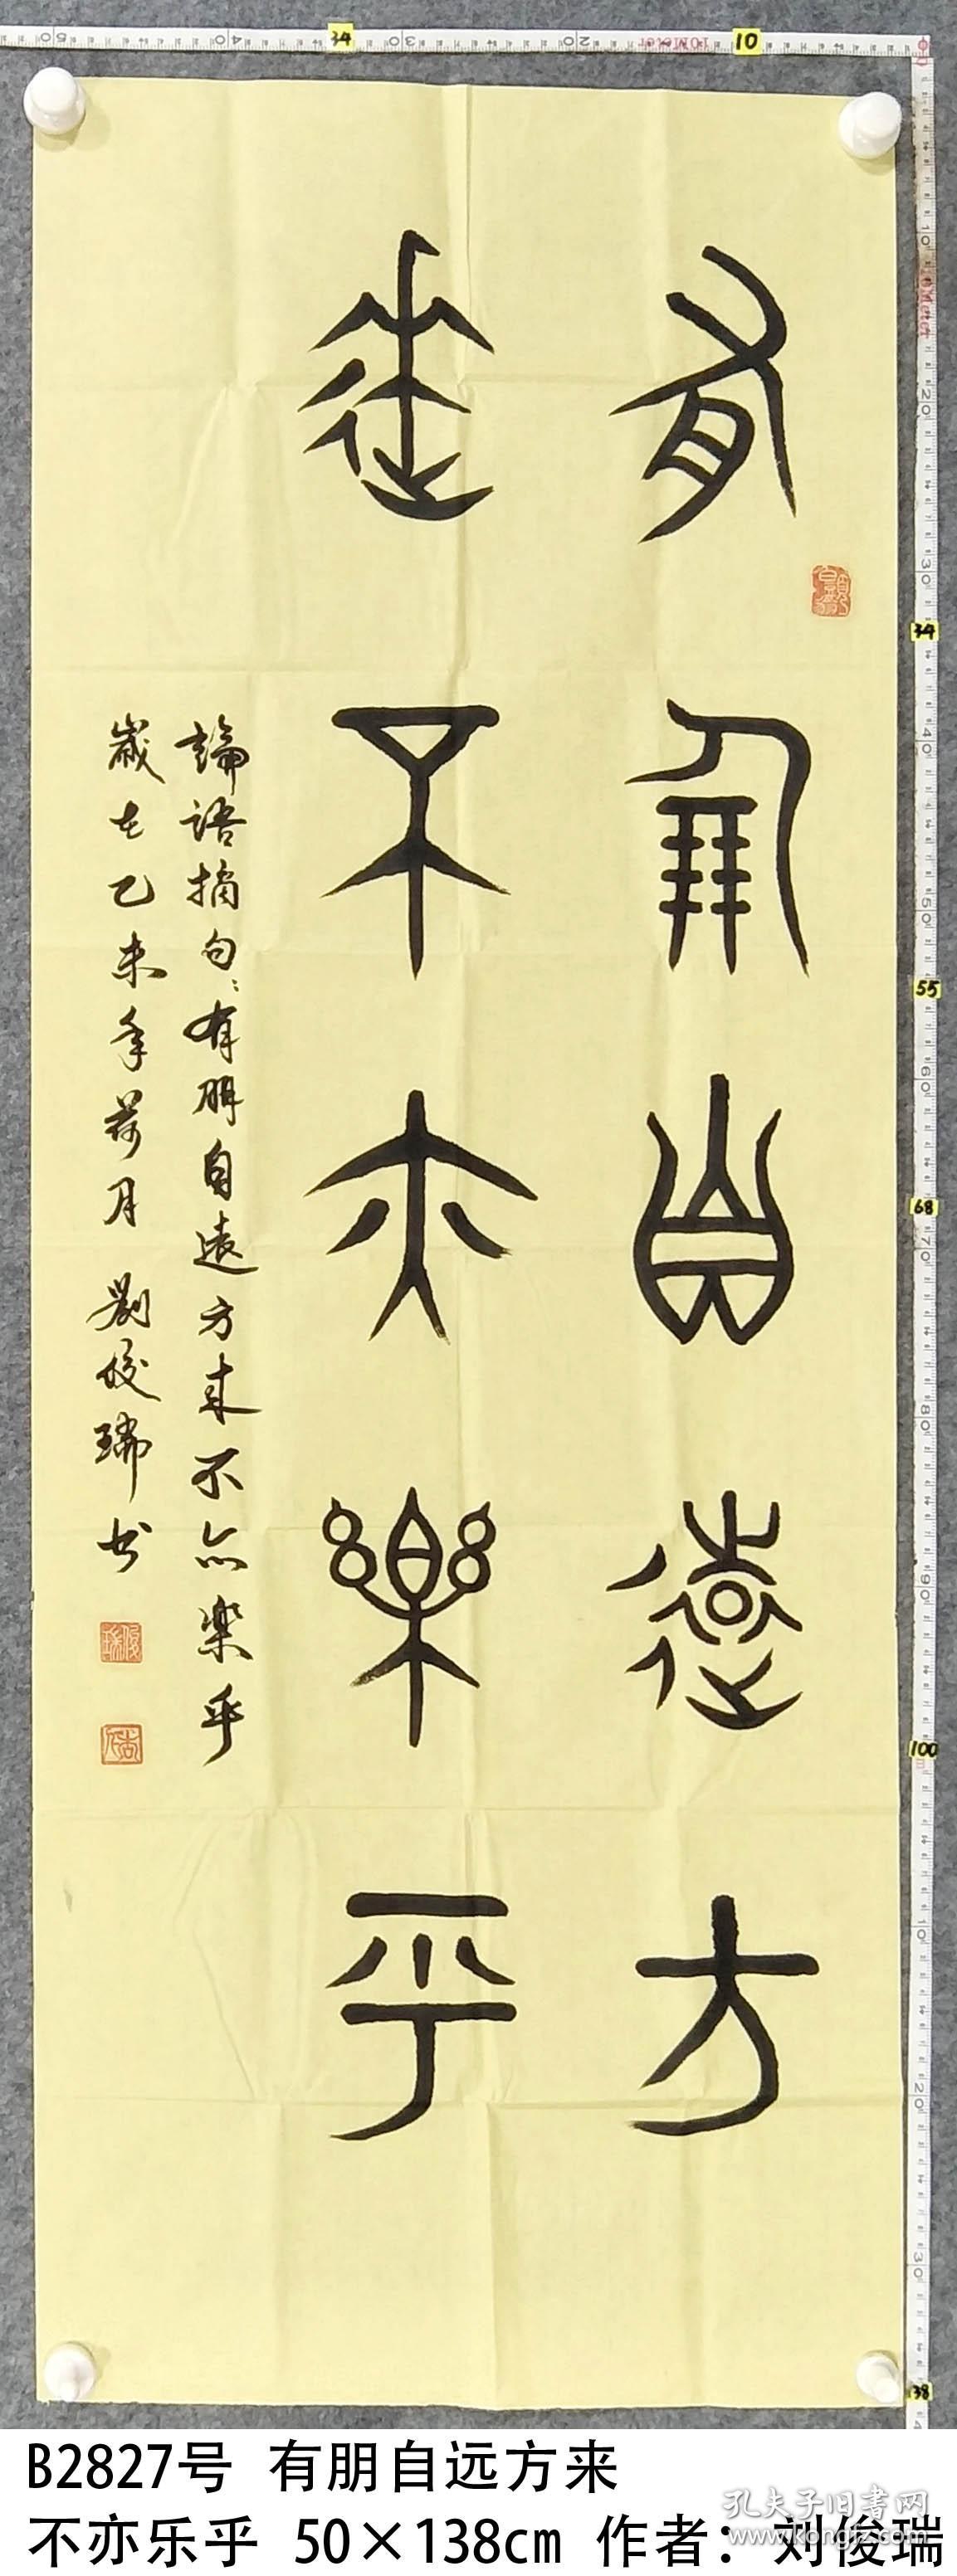 有朋自遠方
來不亦樂乎
論語摘句：有朋自遠方来不亦樂乎
歲在乙未年荷月 劉俊瑞书
B2827号 有朋自远方来
不亦乐乎 50×138cm 作者：刘俊瑞
孔夫子旧书网
www.kongfz.com